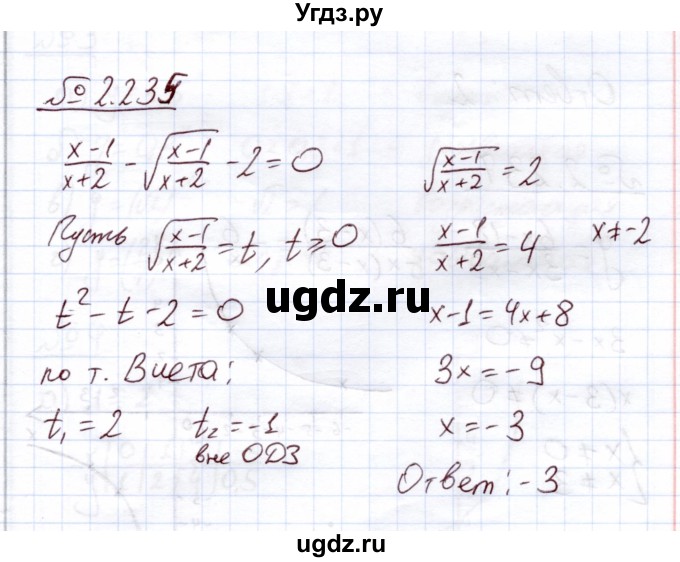 Угдз.ру
№ 2.235
(x-1)/(x+2) - √((x-1)/(x+2)) - 2 = 0
Пусть √((x-1)/(x+2)) = t, t ⩾ 0
t² - t - 2 = 0
по т. Виета:
t₁ = 2 t₂ = -1
вне ОДЗ
√((x-1)/(x+2)) = 2
(x-1)/(x+2) = 4 x ≠ -2
x-1 = 4x+8
3x = -9
x = -3
Ответ: -3
ugdz.ru
ugdz.ru